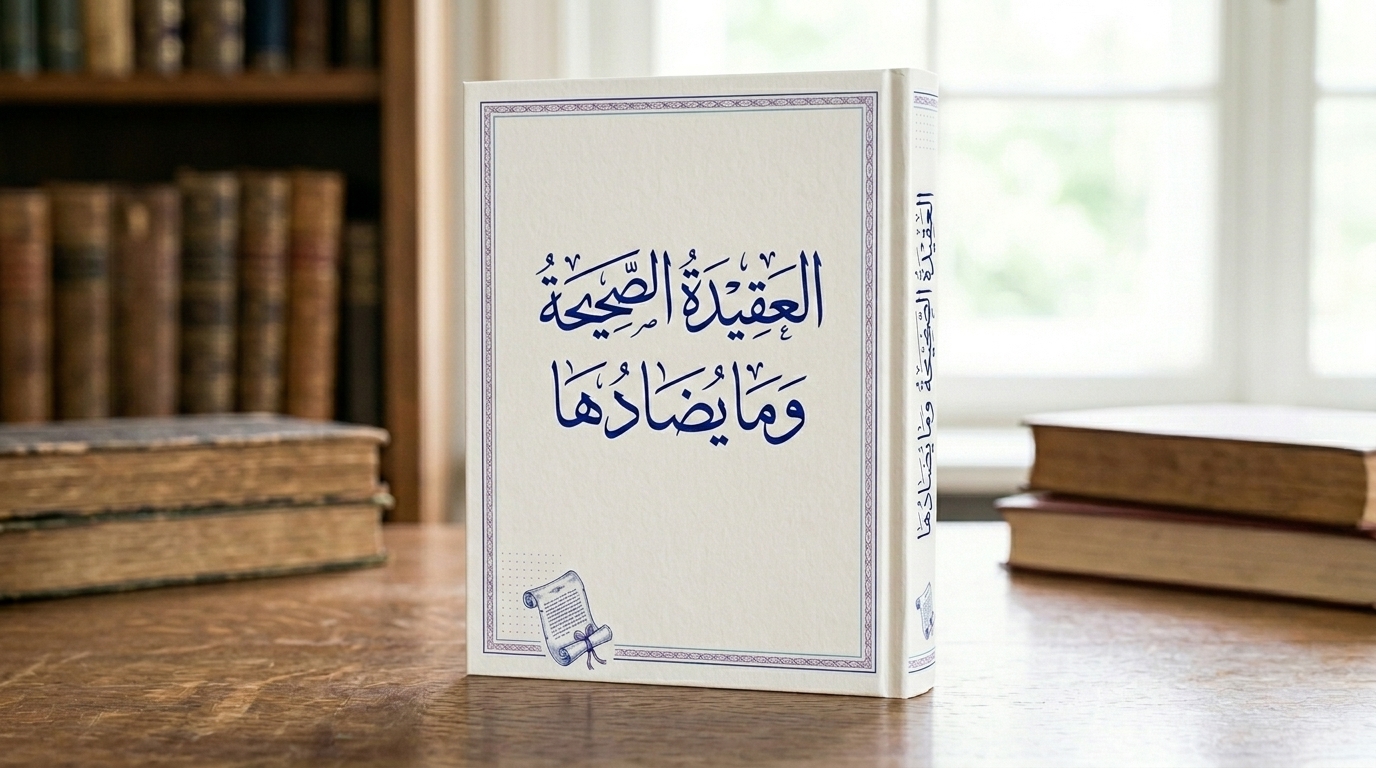 العَقِيْدَةُ الصَّحِيحَةُ
وَمَا يُضَادُهَا
العَقِيْدَةُ الصَّحِيحَةُ وَمَا يُضَادُهَا